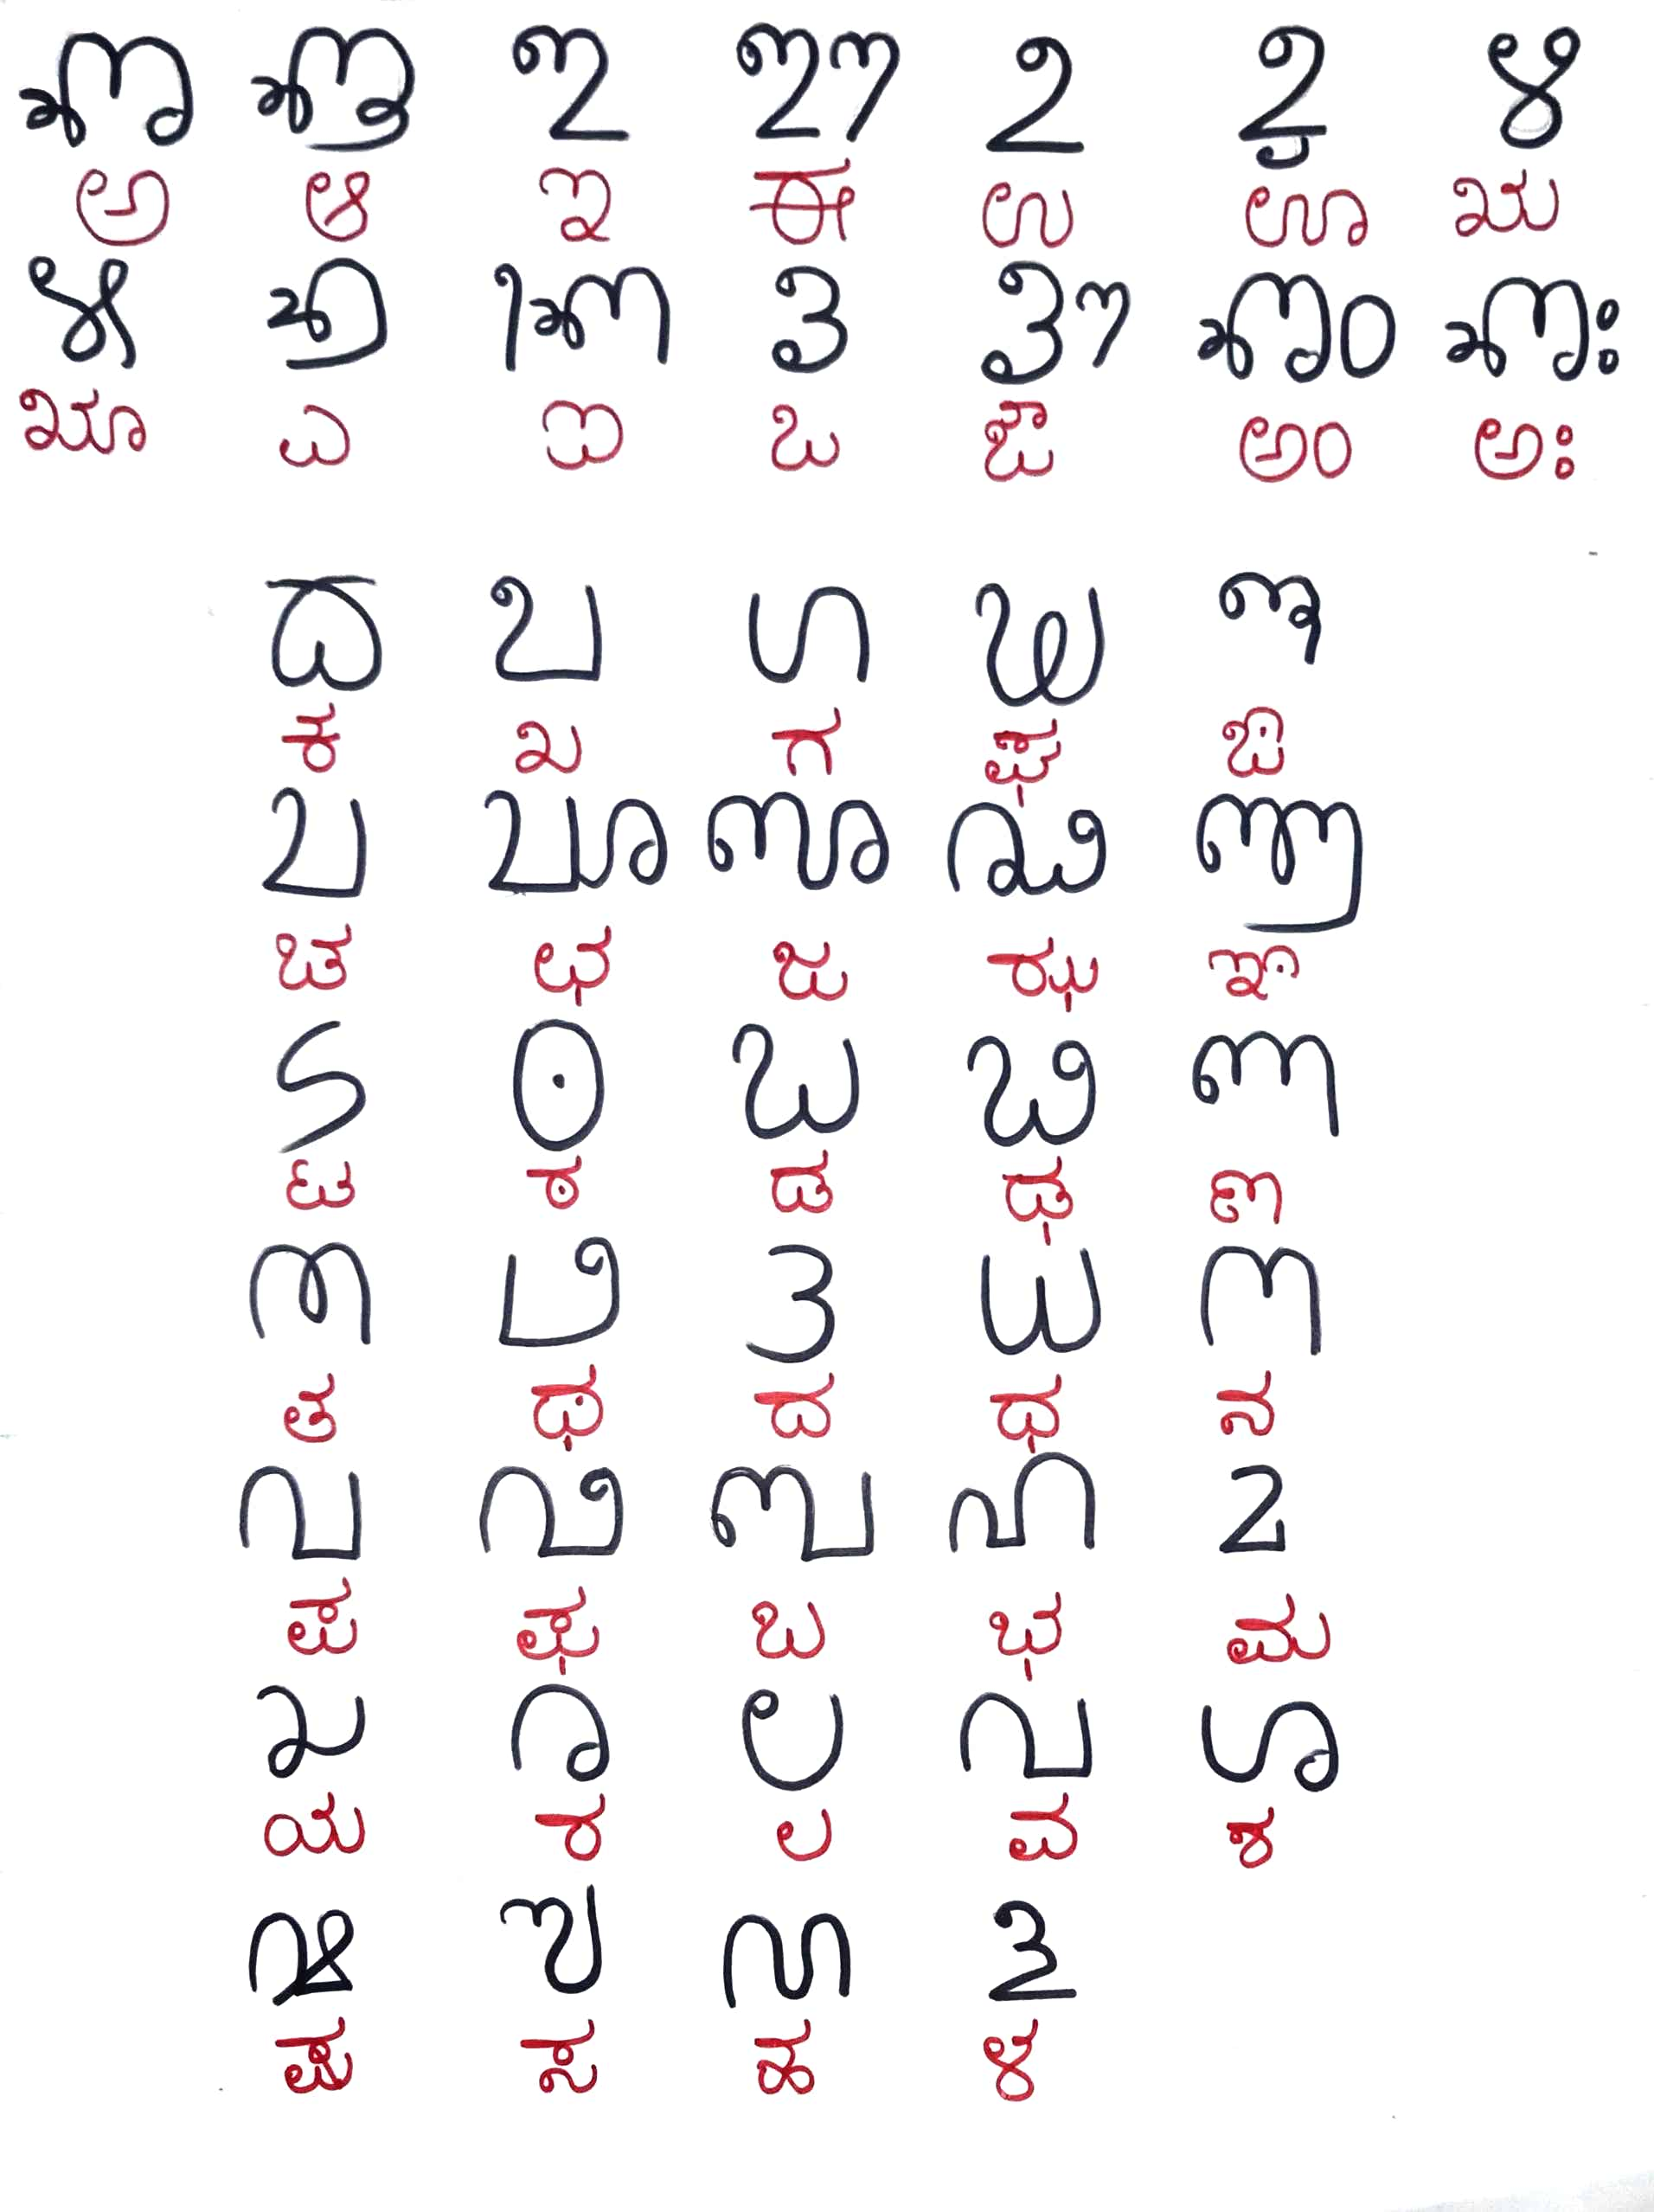 𑎀 𑎁 𑎂 𑎃 𑎄 𑎅 𑎆
ಅ ಆ ಇ ಈ ಉ ಊ ಋ
𑎇 𑎋 𑎎 𑎐 𑎑 𑎀𑏌 𑎀𑏍
ೠ ಎ ಐ ಒ ಔ ಅಂ ಅಃ
𑎒 𑎓 𑎔 𑎕 𑎖
ಕ ಖ ಗ ಘ ಙ
𑎗 𑎘 𑎙 𑎚 𑎛
ಚ ಛ ಜ ಝ ಞ
𑎜 𑎝 𑎞 𑎟 𑎠
ಟ ಠ ಡ ಢ ಣ
𑎡 𑎢 𑎣 𑎤 𑎥
ತ ಥ ದ ಧ ನ
𑎦 𑎧 𑎨 𑎩 𑎪
ಪ ಫ ಬ ಭ ಮ
𑎫 𑎬 𑎭 𑎮 𑎯
ಯ ರ ಲ ವ ಶ
𑎰 𑎱 𑎲 𑎳
ಷ ಸ ಹ ಳ